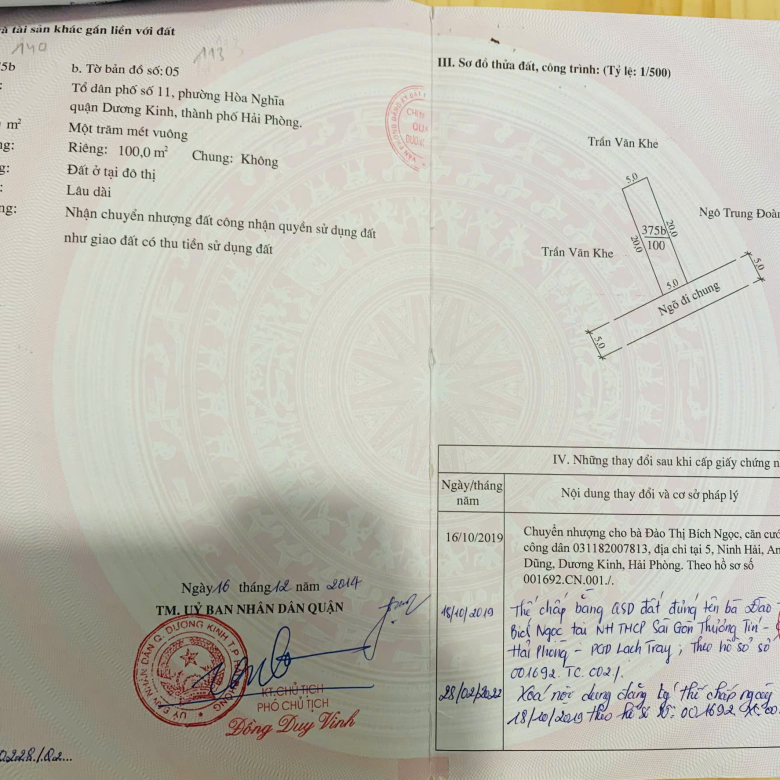 và tài sản khác gắn liền với đất
140
113
5b
b. Tờ bản đồ số: 05
Tổ dân phố số 11, phường Hòa Nghĩa
quận Dương Kinh, thành phố Hải Phòng.
m²
Một trăm mét vuông
ng: Riêng: 100,0 m² Chung: Không
g: Đất ở tại đô thị
: Lâu dài
ng: Nhận chuyển nhượng đất công nhận quyền sử dụng đất
như giao đất có thu tiền sử dụng đất
Ngày 16 tháng 12 năm 2014
TM. UỶ BAN NHÂN DÂN QUẬN
KT.CHỦ TỊCH
PHÓ CHỦ TỊCH
Đồng Duy Vinh
III. Sơ đồ thửa đất, công trình: (Tỷ lệ: 1/500)
Trần Văn Khe
5,0
Ngô Trung Đoàn
20,0
375b
100
20,0
Trần Văn Khe
5,0
5,0
Ngõ đi chung
5,0
IV. Những thay đổi sau khi cấp giấy chứng n
Ngày/tháng
năm
Nội dung thay đổi và cơ sở pháp lý
16/10/2019
Chuyển nhượng cho bà Đào Thị Bích Ngọc, căn cướ
công dân 031182007813, địa chỉ tại 5, Ninh Hải, An
Dũng, Dương Kinh, Hải Phòng. Theo hồ sơ số
001692.CN.001./.
18/10/2019
Thế chấp bằng QSD đất đứng tên bà Đào
Bích Ngọc tại NH TMCP Sài Gòn Thương Tín -
Hải Phòng - PGD Lạch Tray; Theo hồ sơ số
001692.TC.002/.
28/02/2022
Xoá nội dung đăng ký thế chấp ngày
18/10/2019 theo hồ sơ số: 001692